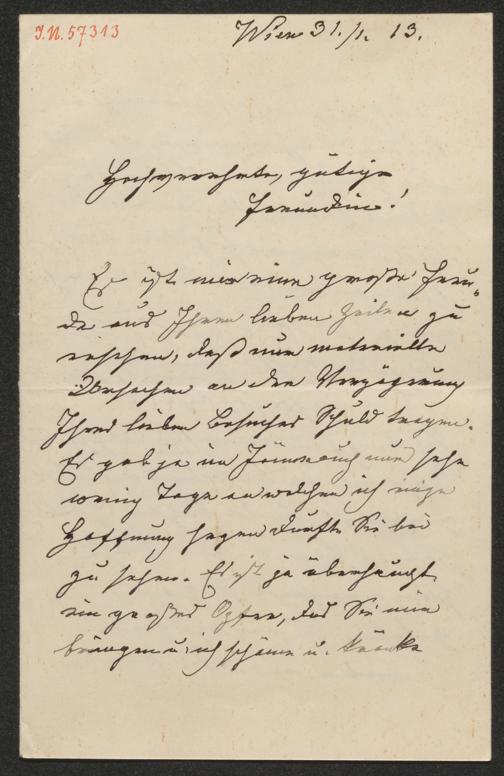 I.N. 57313
Wien 31./1. 13.
Hochverehrte, gütige
Freundin!
Es ist mir eine große Freu-
de aus Ihren lieben Zeilen zu
ersehen, daß nur materielle
Ursachen an der Verzögerung
Ihres lieben Besuches Schuld tragen.
Es gab ja im Jänner auch nur sehr
wenig Tage an welchen ich
Hoffnung hegen durfte Sie bei
zu sehen. Es ist ja überhaupt
ein großes Opfer, das Sie mir
bringen u. ich schäme u. kränke